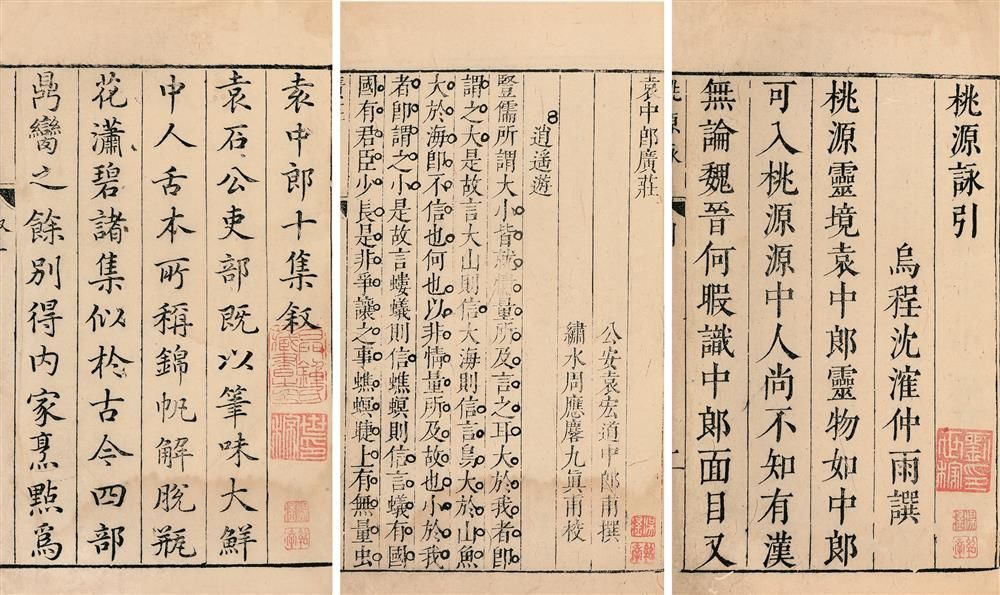 袁中郎十集叙
袁石公吏部既以筆味大鮮
中人舌本所稱錦帆解脫瓶
花瀟碧諸集似於古今四部
鼎臠之餘別得内家烹點爲
袁中郎廣莊
公安袁宏道中郎甫撰
繡水周應麐九眞甫校
逍遥遊
豎儒所謂大小皆就情量所及言之耳大於我者卽
謂之大是故言大山則信大海則信言鳥大於山魚
大於海卽不信也何也以非情量所及故也小於我
者卽謂之小是故言螻蟻則信蟭螟則信言蟻有國
國有君臣少長是非爭讓之事蟭螟睫上有無量虫
桃源詠引
烏程沈漼仲雨譔
桃源靈境袁中郎靈物如中郎
可入桃源源中人尚不知有漢
無論魏晉何暇識中郎面目又